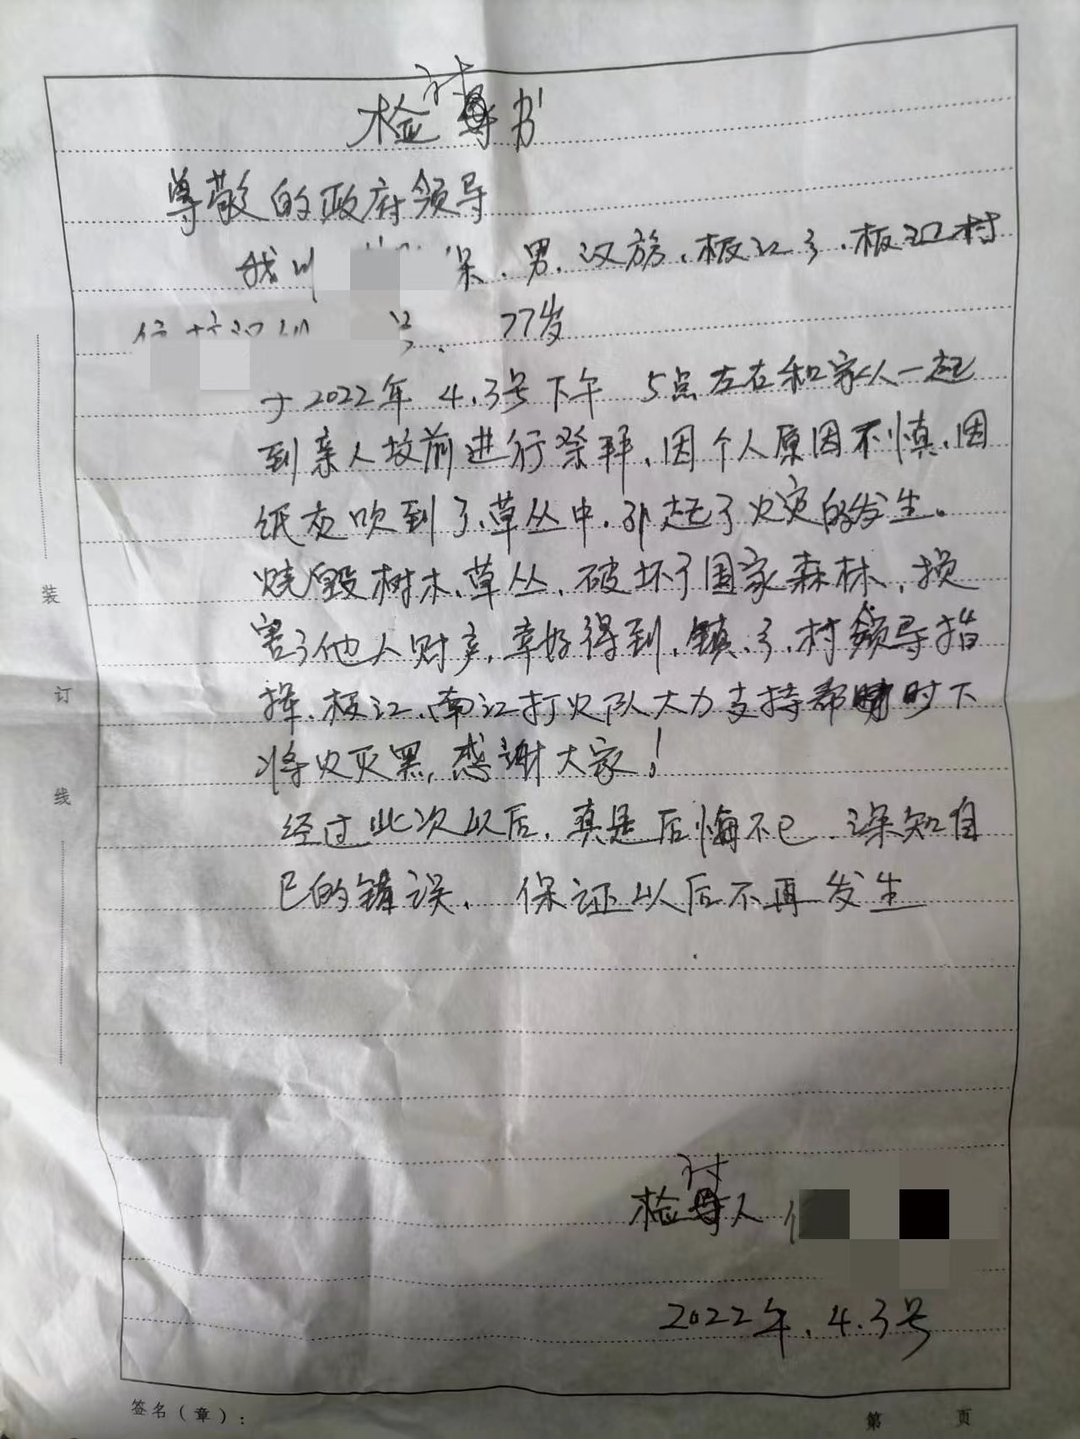 检讨书
尊敬的政府领导
我叫 保、男、汉族、板江乡、板江村
77岁
于2022年 4.3号下午 5点左右和家人一起
到亲人坟前进行祭拜、因个人原因不慎、因
纸灰吹到了、草丛中、引起了火灾的发生。
烧毁树木、草丛、破坏了国家森林、损
害了他人财产,幸好得到、镇、乡、村领导指
挥、板江、南江打火队大力支持帮助下
将火灭黑,感谢大家!
经过此次以后,真是后悔不已、深知自
己的错误、保证以后不再发生
检讨人
2022年、4.3号
装
订
线
签名(章):
第 页